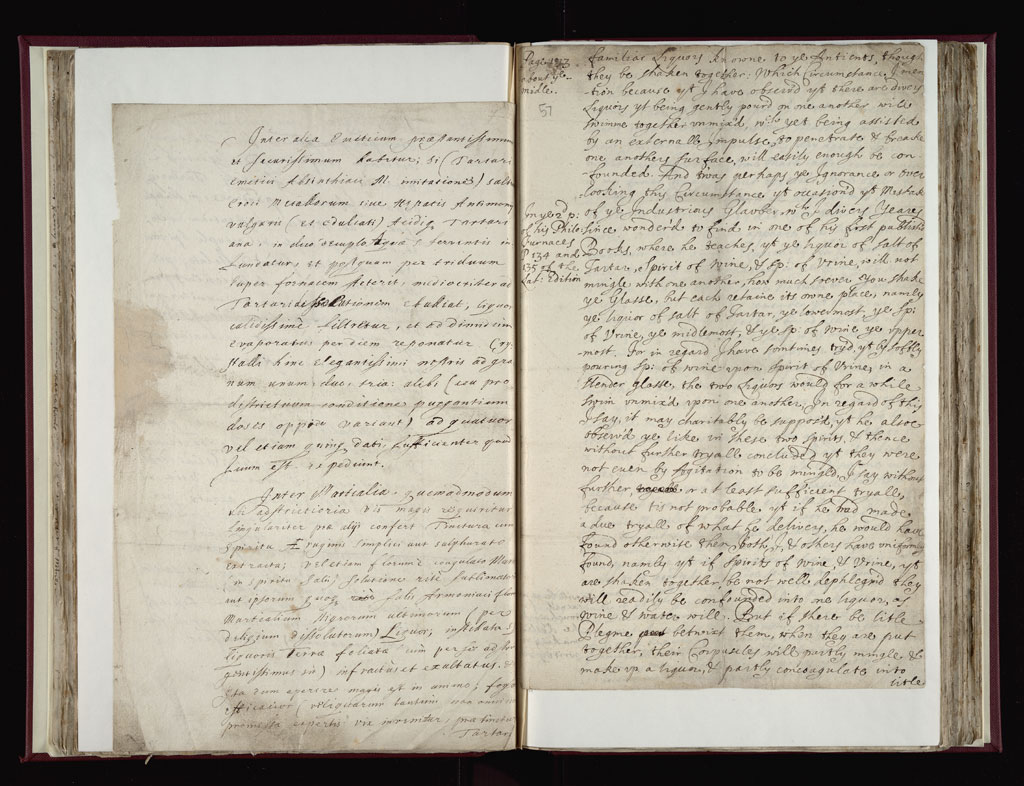 Inter alia Emeticum præstantissimum
et securissimum habetur, si (Tartari
emetici Absinthiaci imitatione) salis
Croci Metallorum sive Hepatis Antimony
vulgaris (et edulcati) Acidis Tartari
in duo
fundatur, et postquam per triduum
super fornacem steterit, mediocriter ac
Tartari solutionem ebulliat, liquor
calidissimè filtretur, et ad dimidium
evaporatus per diem reponatur
stalli hinc elegantissimi nostris ad gra
num unum, duo, tria: alibi (seu pro
districtuum conditione
doses oppidò variant) ad quatuor
vel etiam quinq dati, sufficienter
suum est expediunt.
Inter Martialia, quemadmodum
ubi adstrictoria vis magis requiritur
singulariter præ alijs confert Tinctura cum
Spiritu Æruginis simplici aut sulphurato
extracta; vel etiam
in spiritu Salis, solutione ritè sublimato
aut ipsorum quoq Salis Armoniaci
Martialium nigrorum ultimorum per
deliquium dissolutorum) Liquor, instillata
liquoris Terræ foliatæ
infractus et exaltatus.
Ita dum aperire magis est in animo;
promissa expertis vix
Tartari
Page 143
about ye
midle.
57
familiar Liquors knowne to ye Antients, though
they be shaken together: Which Circumstance I men
-tion because yt I have observ'd yt there are divers
Liquors yt being gently pour'd on one another will
swimme together unmix'd, wch yet being assisted
by an externall impulse, to penetrate & breake
one anothers surface, will easily enough be con
-founded. And twas perhaps ye Ignorance or over
-looking this Circumstance yt occasion'd yt Mistake
In ye 2d p:
of his Philo:
Furnaces
P 134 and
135 of the
Lat: Edition
of ye Industrious Glauber wch I divers Yeares
since wonder'd to find in one of his first publish'd
Books, where he teaches, yt ye liquor of salt of
Tartar, spirit of Wine, & Sp: of Urine, will not
mingle with one another, how much soever You shake
ye Glasse, but each retaine its owne place, namely
ye liquor of salt of Tartar, ye lowermost, ye Sp:
of Urine, ye middlemost, & ye Sp: of wine ye upper
most. For in regard I have somtimes try'd, yt by softly
pouring Sp: of wine upon spirit of Urine, in a
slender glasse, the two Liquors would for a while
swim unmix'd upon one another, In regard of this
I say, it may charitably be suppos'd, yt he alsoe
observ'd ye like in these two spirits, & thence
without further tryall concluded yt they were
not even by Agitation to be mingl'd. I say without
further, or at least sufficient tryall,
because 'tis not probable yt if he had made
a due tryall of what he delivers, he would have
found otherwise then both I, & others have uniformly
found, namely yt if spirits of Wine, & Urine, yt
are shaken together be not well dephlegm'd they
will readily be confounded into one liquor, as
wine & water will. But if there be litle
Phlegme betwixt them, when they are put
together, their Corpuscles will partly mingle &
make up a liquor, & partly concoagulate into
litle